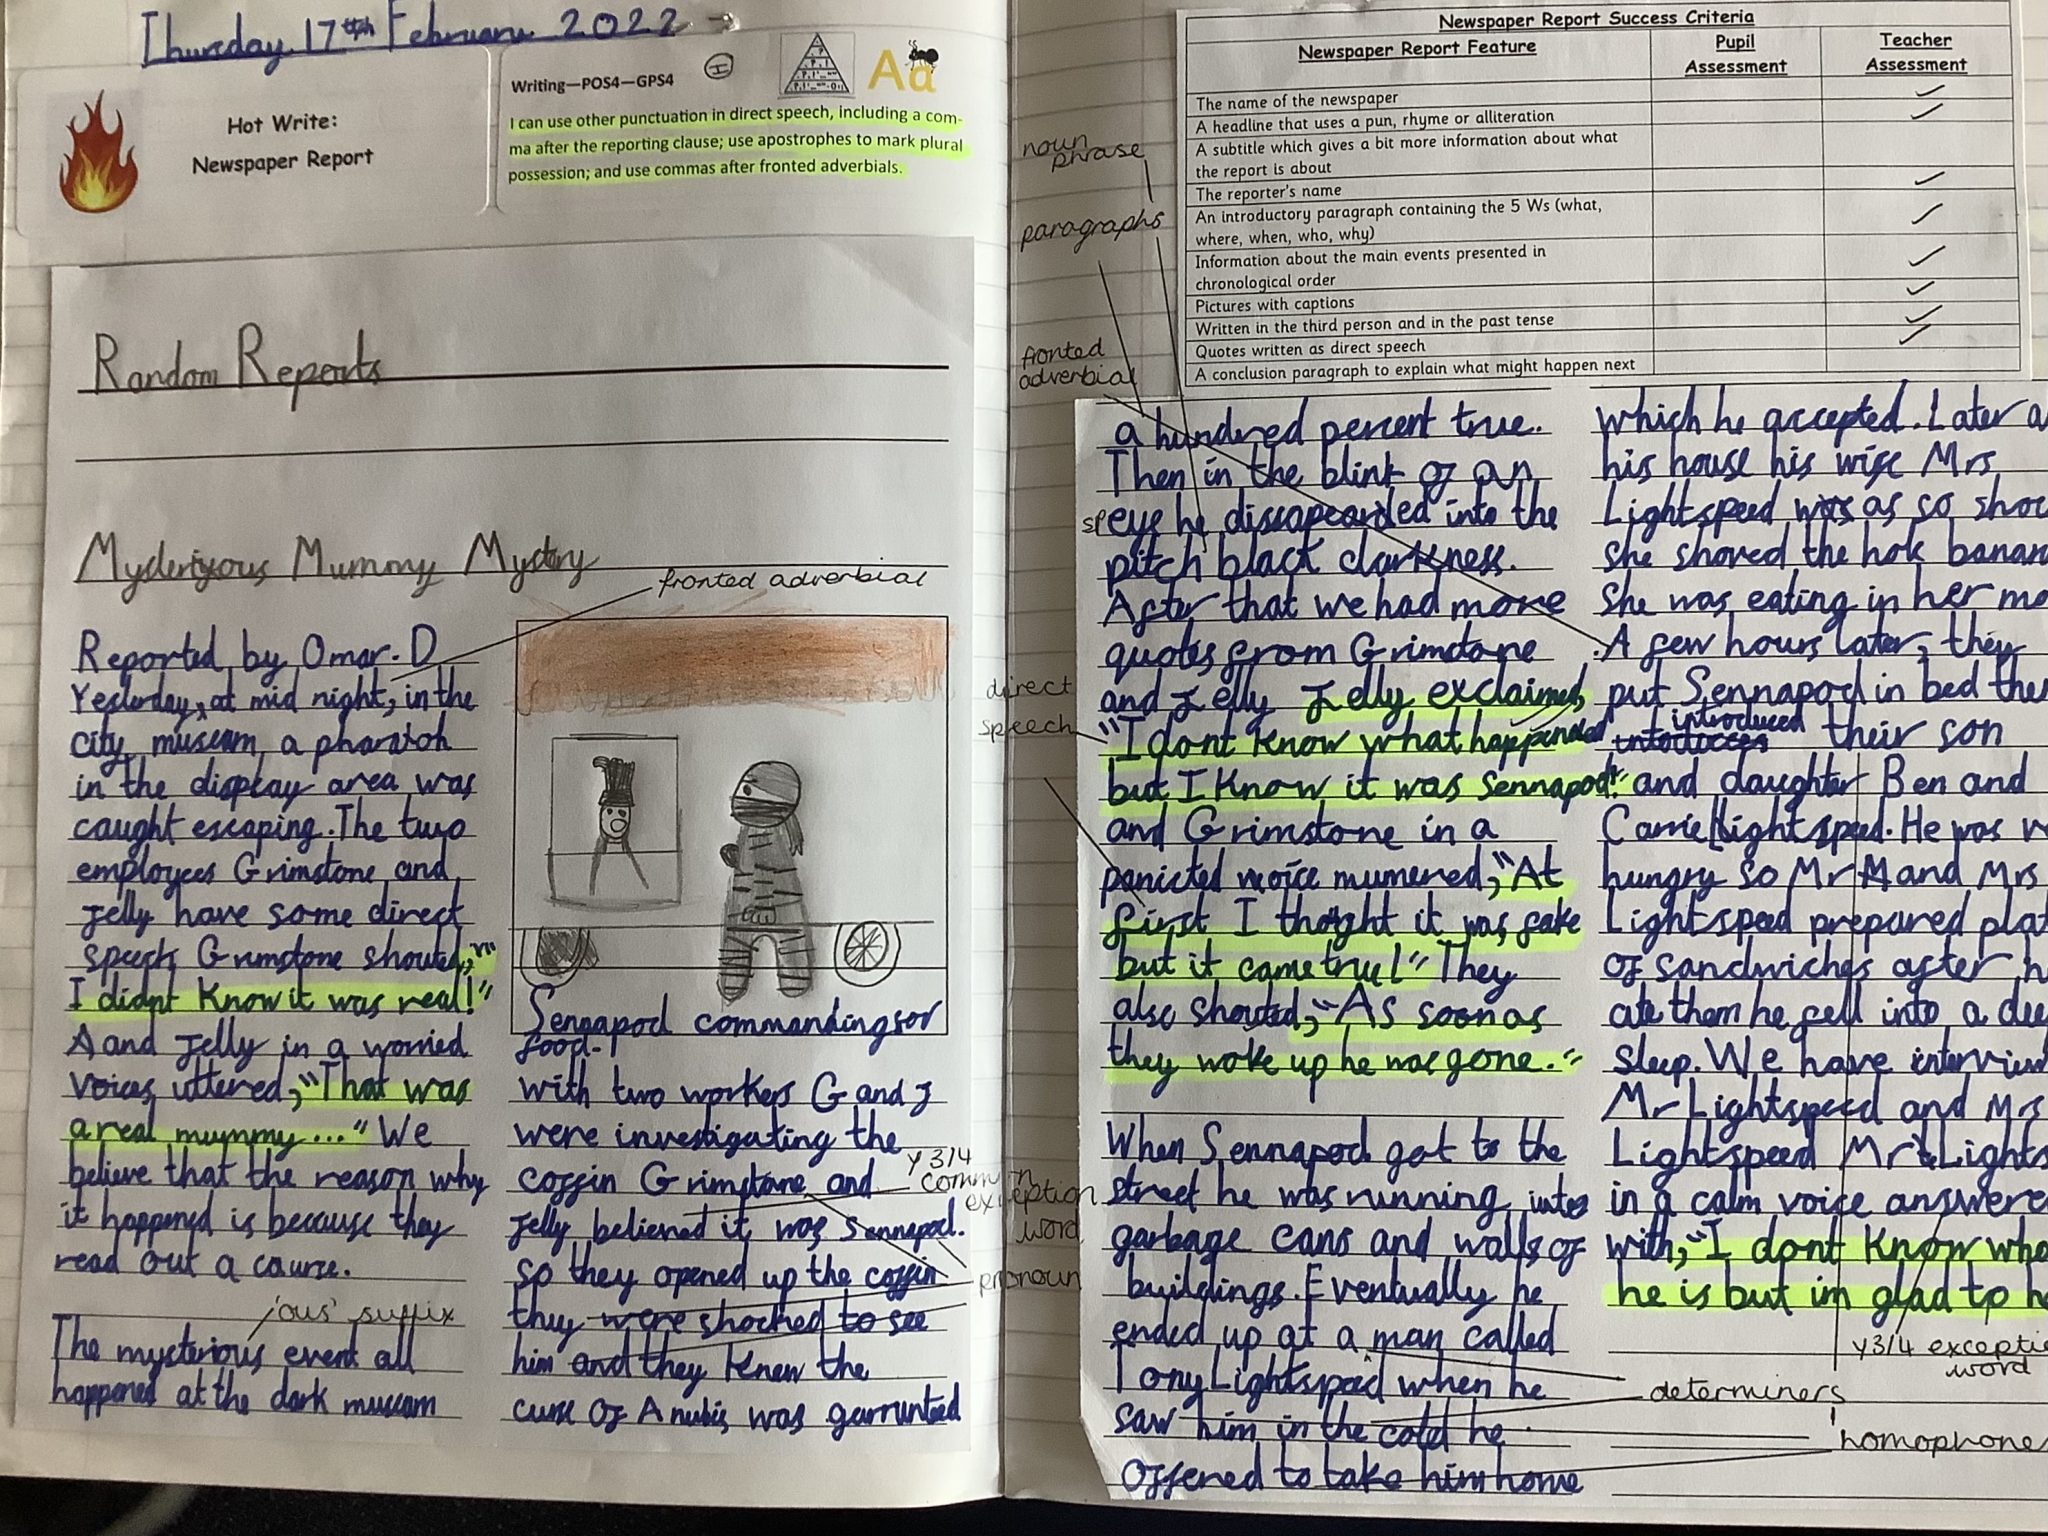 Thursday 17th February 2022
Hot Write:
Newspaper Report
Writing—POS4—GPS4
I
Aa
I can use other punctuation in direct speech, including a com-
ma after the reporting clause; use apostrophes to mark plural
possession; and use commas after fronted adverbials.
Random Reports
Mysteriyous Mummy Mystery
fronted adverbial
Reported by Omar. D
Yesterday, at mid night, in the
city museam, a pharaoh
in the display area was
caught escaping. The two
employees Grimstone and
Jelly have some direct
speech Grimstone shouted, "
I didnt know it was real!"
Aand Jelly in a worried
voices uttered, "That was
a real mummy..." We
believe that the reason why
it happened is because they
read out a caurse.
'ous' suffix
The mysterious event all
happened at the dark museam
Sennapod commanding for
food.
with two workers G and J
were investigating the
coffin Grimstone and
Jelly believed it was Sennapod.
so they opened up the coffin
they were shocked to see
him and they knew the
curse of Anubis was garrunteed
y3/4
common
exception
word
pronoun
noun
phrase
paragraphs
fronted
adverbial
direct
speech
sp
Newspaper Report Success Criteria
Newspaper Report Feature
Pupil
Assessment
Teacher
Assessment
The name of the newspaper
A headline that uses a pun, rhyme or alliteration
A subtitle which gives a bit more information about what
the report is about
The reporter's name
An introductory paragraph containing the 5 Ws (what,
where, when, who, why)
Information about the main events presented in
chronological order
Pictures with captions
Written in the third person and in the past tense
Quotes written as direct speech
A conclusion paragraph to explain what might happen next
a hundred percent true.
Then in the blink of an
eye he into the
pitch black darkness.
After that we had more
quotes from Grimstone
and Jelly Jelly exclaimed,
"I dont know what happended
but I know it was Sennapod!"
and Grimstone in a
panicted voice mumered, "At
first I thoght it was fake
but it came true!" They
also shouted, "As soon as
they woke up he was gone."
When Sennapod got to the
street he was running into
garbage cans and walls of
buildings. Eventually he
ended up at a man called
Tony Lightspeed when he
saw him in the cold he
offered to take him home
which he accepted. Later
his house his wife Mrs
Lightspeed was so
she shoved the
she was eating in her
A few hours later, they
put Sennapod in bed
introduced their son
and daughter Ben and
Carrie Lightspeed. He was
hungry so Mr and Mrs
Lightspeed prepared
of sandwiches after
ate them he fell into a
sleep. We have
Mr Lightspeed and Mrs
Lightspeed Mr
in a calm voice
with, "I dont know
he is but im glad to
y3/4
word
determiners